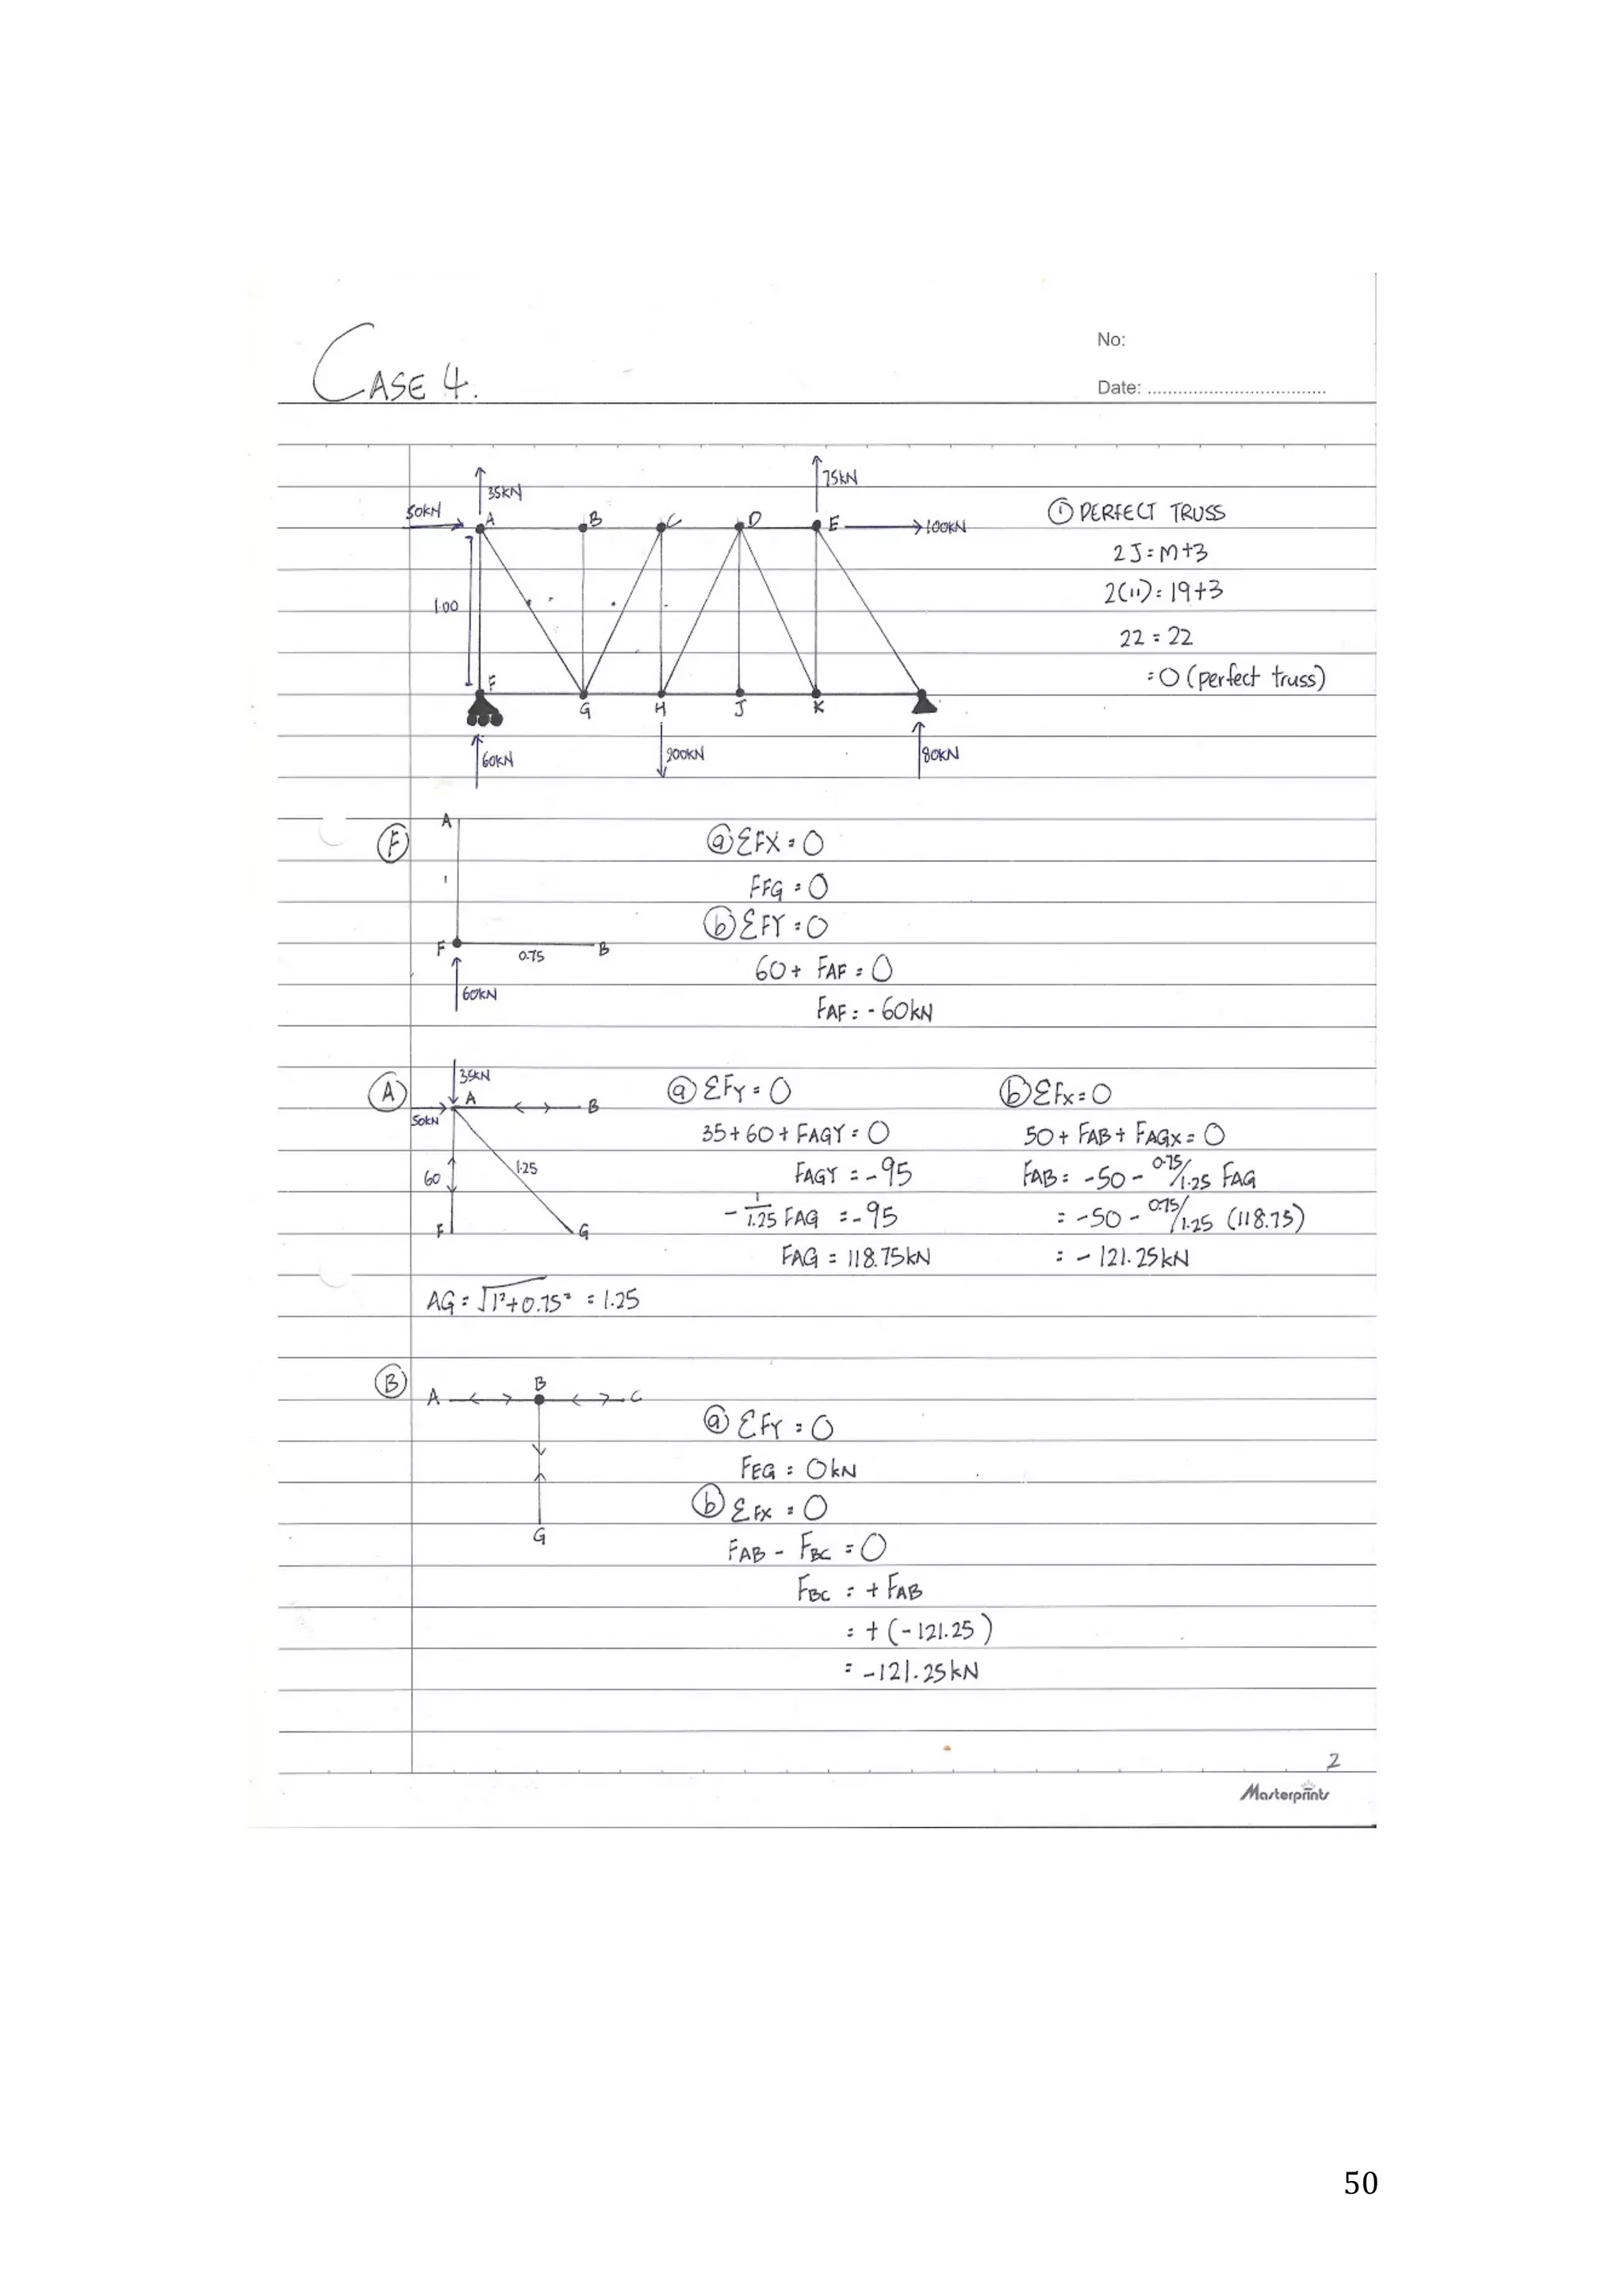 No:
CASE 4.
Date: ..................................
35kN
75kN
50kN
A B C D E 100kN
1.00
F
G H J K
60kN 200kN 80kN
① PERFECT TRUSS
2J = M+3
2(11) = 19+3
22 = 22
= 0 (perfect truss)
Ⓕ
A
1
F 0.75 B
60kN
ⓐ ΣFX = 0
FFG = 0
ⓑ ΣFY = 0
60 + FAF = 0
FAF = -60kN
Ⓐ
35kN
A B
50kN
60 1.25
F G
AG = √1²+0.75² = 1.25
ⓐ ΣFY = 0
35 + 60 + FAGY = 0
FAGY = -95
- 1/1.25 FAG = -95
FAG = 118.75kN
ⓑ ΣFx = 0
50 + FAB + FAGX = 0
FAB = -50 - 0.75/1.25 FAG
= -50 - 0.75/1.25 (118.75)
= - 121.25kN
Ⓑ
B
A C
G
ⓐ ΣFY = 0
FEG = 0kN
ⓑ ΣFX = 0
FAB - FBC = 0
FBC = + FAB
= + (-121.25)
= -121.25kN
2
Masterprints
50